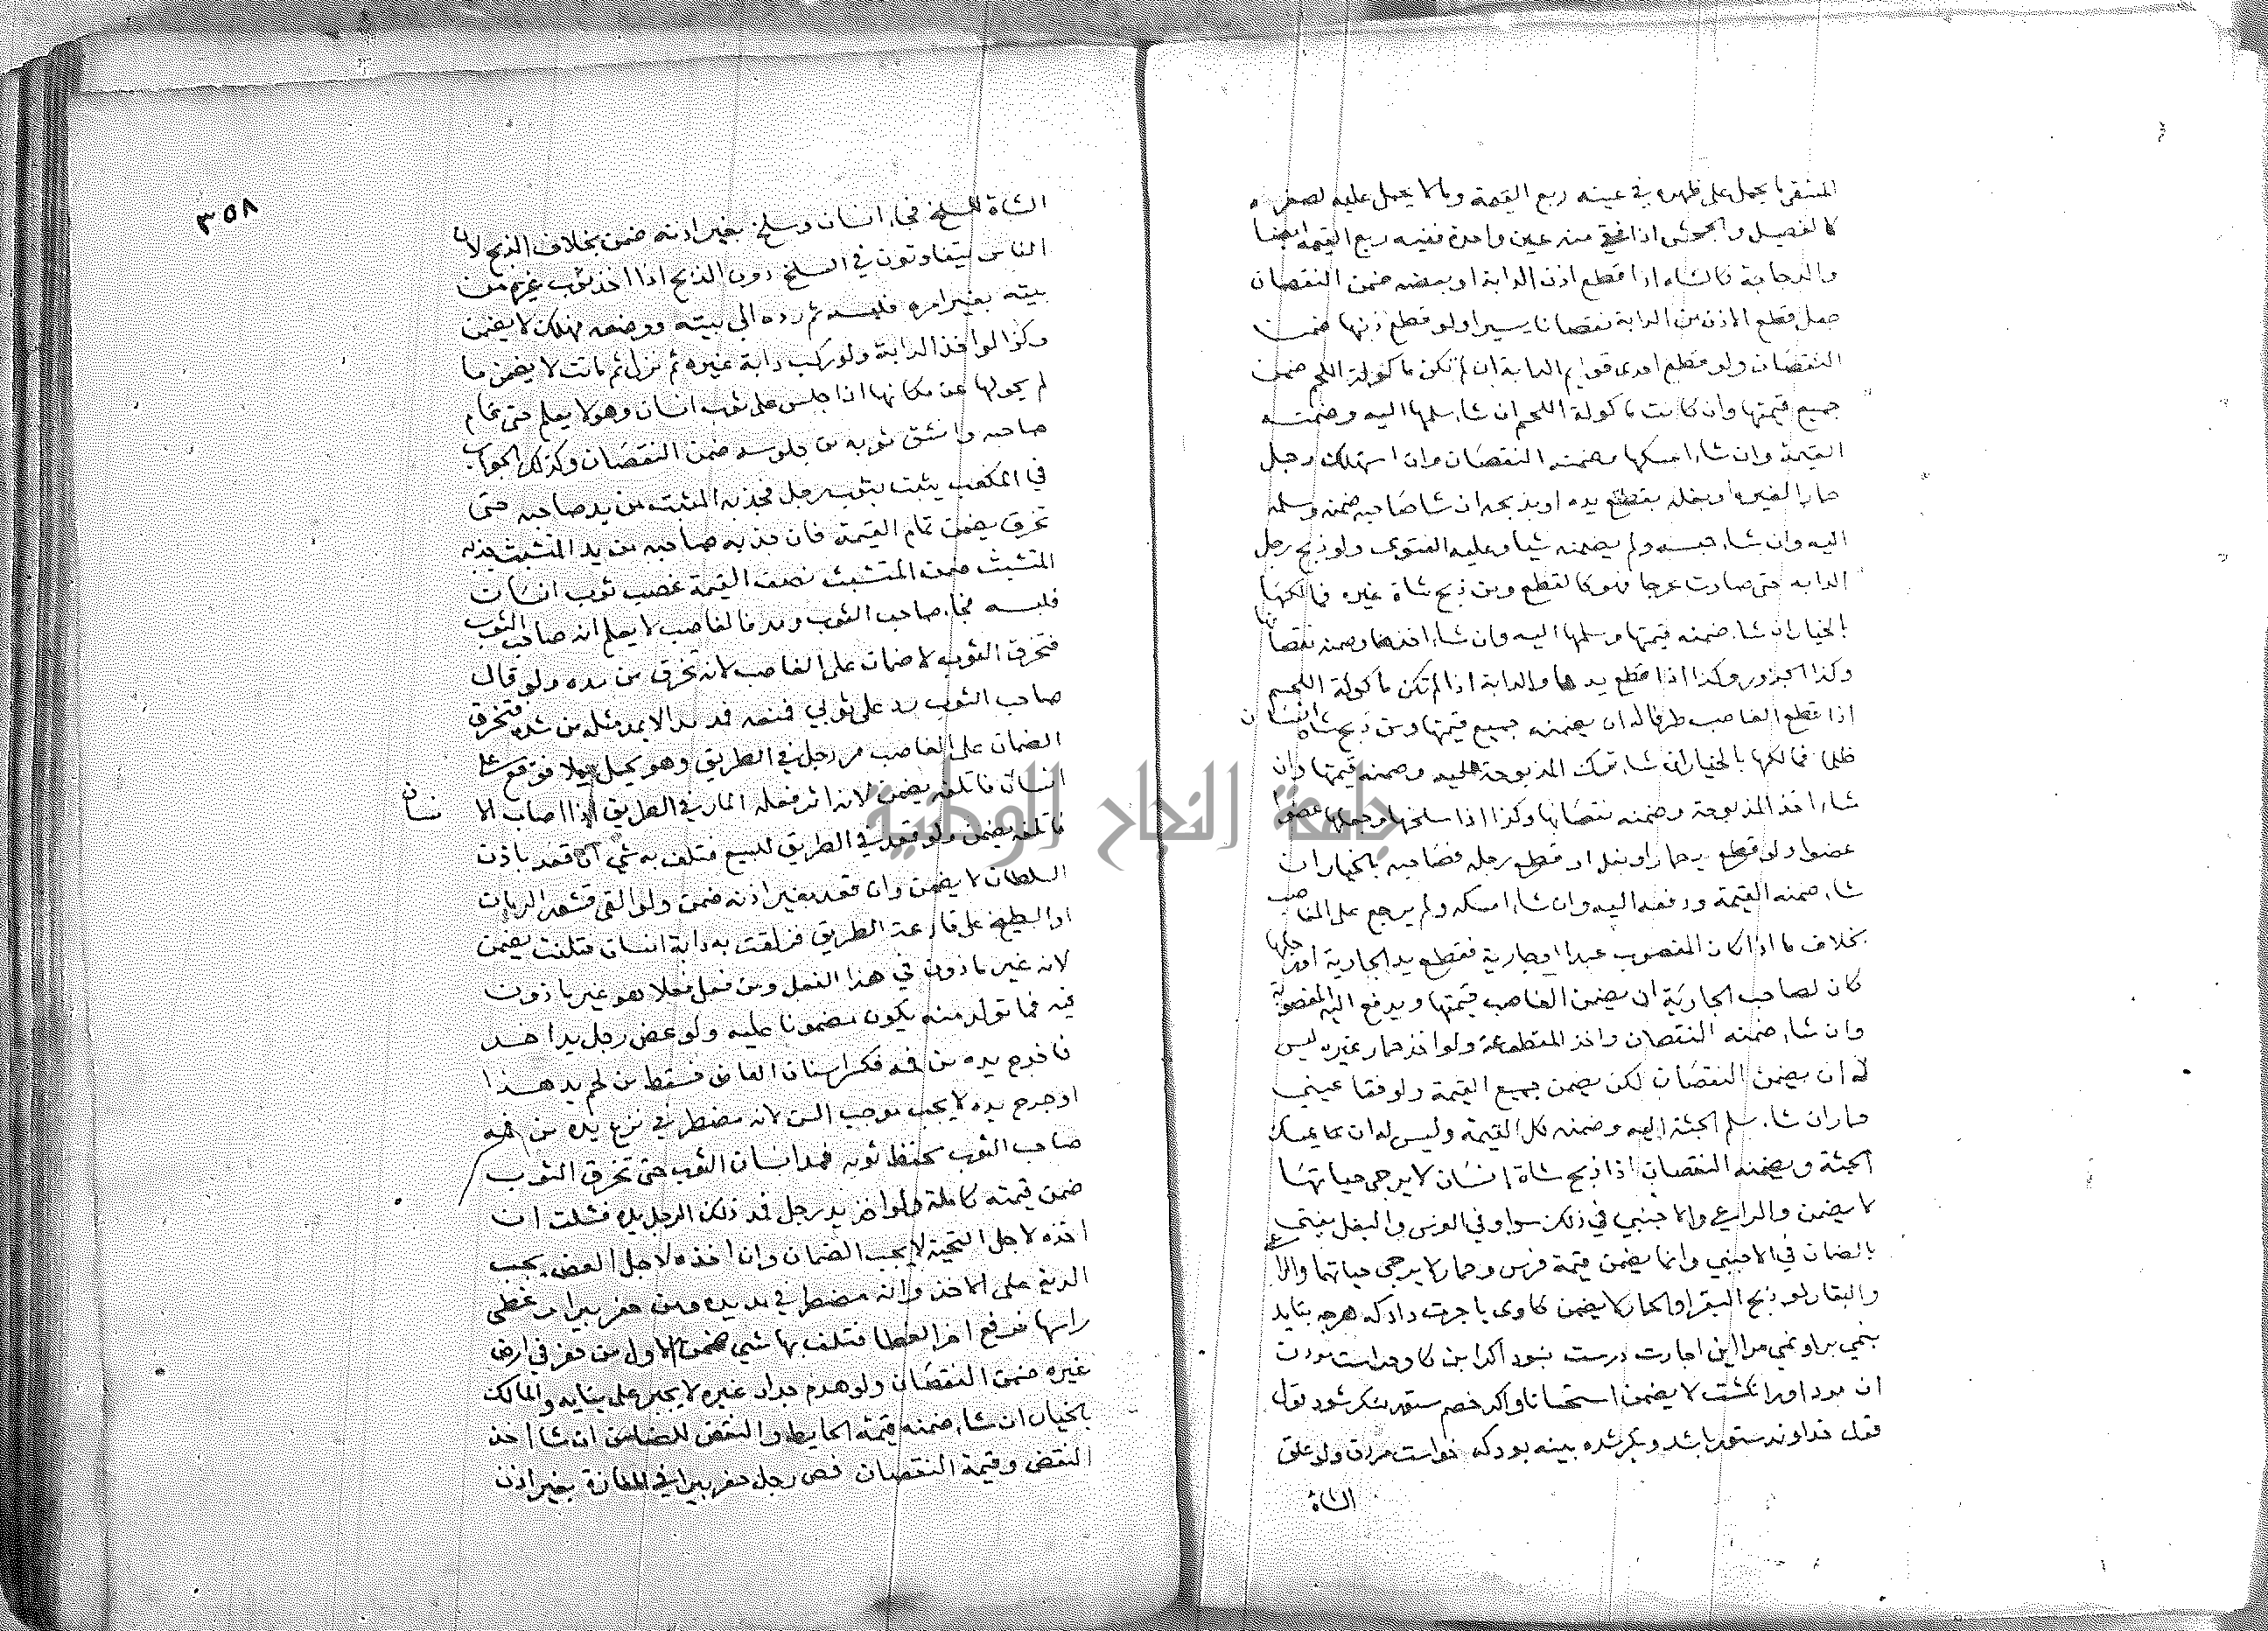 المشقرما يحمل على ظهره في عينه ربع القيمة وما لا يحمل عليه لصغره
كالفصيل والجحش اذا فقئ منه عين واحدة ففيه ربع القيمة ايضا
والدجاجة كالشاه اذا قطع اذن الدابة او بعضه ضمن النقصان
جعل قطع الاذن من الدابة نقصانا يسيرا ولو قطع ذنبها ضمن
النقصان ولو قطع احدى قوايم الدابة ان لم تكن ماكولة اللحم ضمن
جميع قيمتها وان كانت ماكولة اللحم ان شاء سلمها اليه وضمنه
القيمة وان شاء امسكها وضمنه النقصان وان استهلك رجل
حمار الغيره او بغله بقطع يده او بذبحه ان شا صاحبه ضمنه وسلمه
اليه وان شاء حبسه ولم يضمنه شيا وعليه الفتوى ولو ذبح رجل
الدابه حتى صارت عرجا فهو كالقطع ومن ذبح شاة غيره فمالكها
بالخيار ان شاء ضمنه قيمتها وسلمها اليه وان شاء اخذها وضمنه نقصانها
وكذا الجزور وكذا اذا قطع يدها والدابة اذا لم تكن ماكولة اللحم
اذا قطع الغاصب طرفا له ان يضمنه جميع قيمتها ومن ذبح شاة انسان
ظلما فمالكها بالخيار ان شاء ترك المذبوحة عليه وضمنه قيمتها وان
شاء اخذ المذبوحة وضمنه نقصانها وكذا اذا سلخها وجعلها عضوا
عضوا ولو قطع يد حمار او بغل او قطع رجله فصاحبه بالخيار ان
شاء ضمنه القيمة ودفعه اليه وان شاء امسكه ولم يرجع على الغاصب
بخلاف ما اذا كان المغصوب عبدا او جارية فقطع يد الجارية او رجلها
كان لصاحب الجارية ان يضمن الغاصب قيمتها ويدفع اليه المغصوبة
وان شاء ضمنه النقصان واخذ المقطوعة ولو اخذ حمار غيره ليس
له ان يضمن النقصان لكن يضمن جميع القيمة ولو فقا عيني
حمار ان شاء سلم الجثة اليه وضمنه كل القيمة وليس له ان يمسك
الجثة ويضمنه النقصان اذا ذبح شاة انسان لا يرجى حياتها
لا يضمن والراعي والاجنبي في ذلك سوا وفي الفرس والبغل يفتى
بالضمان في الاجنبي وانما يضمن قيمة فرس وحمار لا يرجى حياتهما والراعي
والبقار لو ذبح البقر او الحمار لا يضمن كاوى باجرت داد كه هرچه بتايد
بنمي براو نمي مرا اين اجارت درست نبود اكر اين كاو
ان مرد اورا بكشت لا يضمن استحسانا واكر خصم ستور منكر شود قول
قول خداوند ستور باشد وبكر شده بينه بود كه خواست مردن ولو علق
الشاة
٣٥٨
الشاة للسلخ فجاء انسان وسلخ بغير اذنه ضمن بخلاف الذبح لان
الناس يتفاوتون في السلخ دون الذبح اذا اخذ ثوب غيره من
بيته بغير امره فلبسه ثم رده الى بيته ووضعه فهلك لا يضمن
وكذا لو اخذ الدابة ولو ركب دابة غيره ثم نزل ثم ماتت لا يضمن ما
لم يحولها عن مكانها اذا جلس على ثوب انسان وهو لا يعلم حتى قام
صاحبه وانشق ثوبه من جلوسه ضمن النقصان وكذلك الجواب
في المكعب يتشبث بثوب رجل فجذبه المتشبث من يد صاحبه حتى
تخرق يضمن تمام القيمة فان جذبه صاحبه من يد المتشبث جذبه
المتشبث ضمن المتشبث نصف القيمة غصب ثوب انسان
فلبسه فجاء صاحب الثوب ومد فالغاصب لا يعلم انه صاحب الثوب
فتخرق الثوب لا ضمان على الغاصب لانه تخرق من مده ولو قال
صاحب الثوب رد علي ثوبي فمنعه فمد مدا لا يمد مثله من شدة فتخرق
الضمان على الغاصب مر رجل في الطريق وهو يحمل حملا فوقع على
انسان فاتلفه يضمن لانه اثر فعله المار في الطريق اذا اصاب الانسان
فاتلفه يضمن ولو قعد في الطريق للبيع فتلف به شي ان قعد باذن
السلطان لا يضمن وان قعد بغير اذنه ضمن ولو القى قشور الرمان
او البطيخ على قارعة الطريق فزلقت به دابة انسان فتلفت يضمن
لانه غير ماذون في هذا الفعل ومن فعل فعلا هو غير ماذون
فيه فما تولد منه يكون مضمونا عليه ولو عض رجل يد احد
فاخرج يده من فمه فكسر اسنان العاض فسقط من لحم يد هذا
او جرح يده لا يجب موجب السن لانه مضطر في نزع يده من فمه
صاحب الثوب يحفظ ثوبه فمد انسان الثوب حتى تخرق الثوب
ضمن قيمته كاملة ولو اخذ يد رجل فمد ذلك الرجل يده فشلت ان
اخذه لاجل التحية لا يجب الضمان وان اخذه لاجل العض يجب
الدية على الاخذ وانه مضطر في مد يده ومن حفر بيرا وغطى
راسها فرفع اخر الغطا فتلف بها شي ضمن الاول من حفر في ارض
غيره ضمن النقصان ولو هدم جدار غيره لا يجبر على بنايه والمالك
بالخيار ان شاء ضمنه قيمة الحايط والنقض للضامن ان شا اخذ
النقض وقيمة النقصان رجل حفر بيرا في المفازة بغير اذن
جامعة النجاح الوطنية